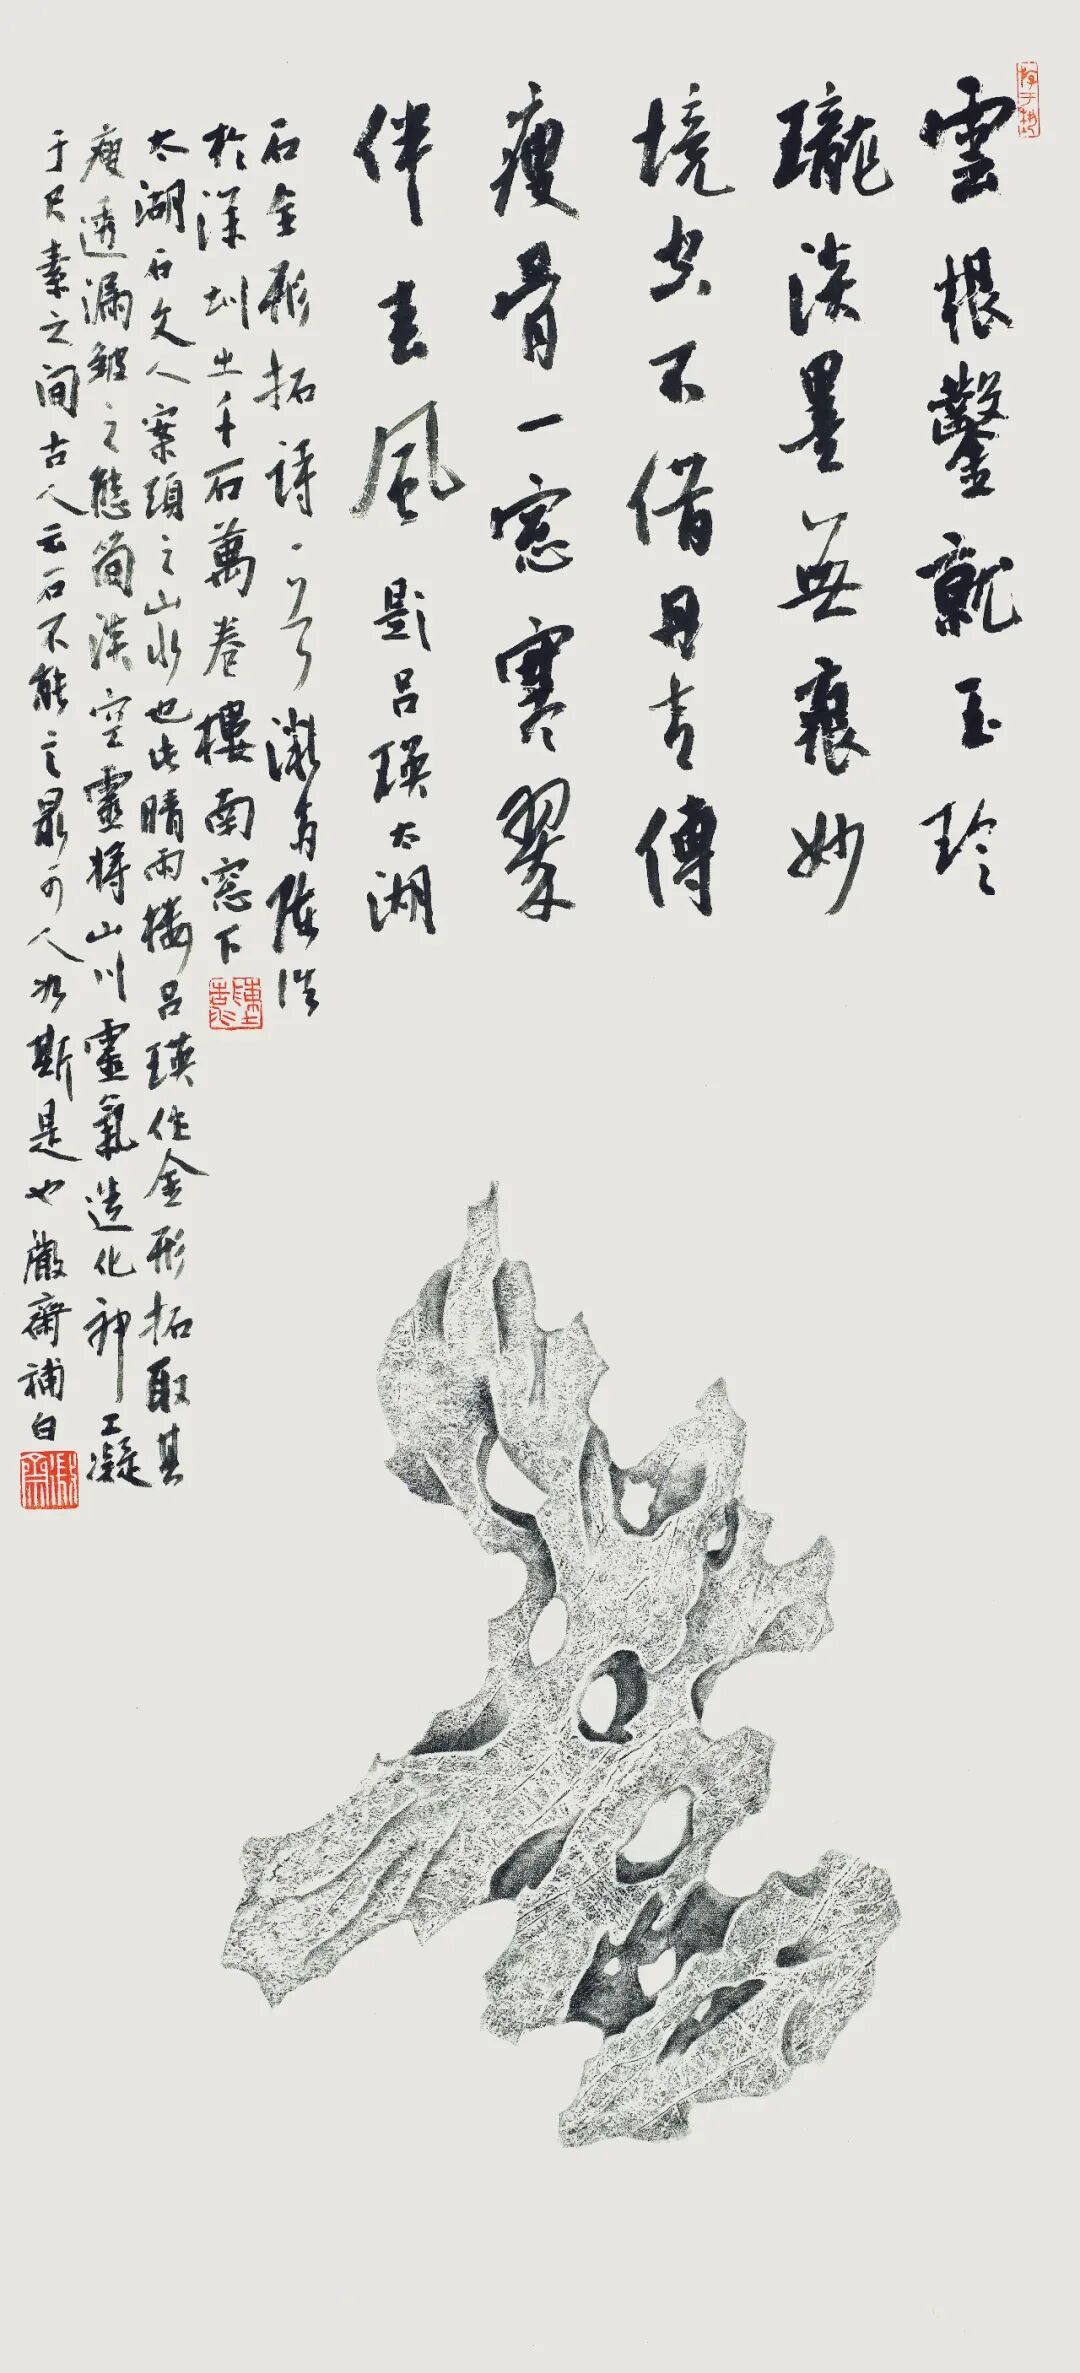 雲根鑿就玉玲
瓏淡墨無痕妙
境空不借丹青傳
瘦骨一窓寒翠
伴春風 題吕瑛太湖
石全形拓詩一首 陳浩
於深圳之千石萬卷樓南窓下
太湖石文人案頭之山水也此晴雨樓吕瑛作全形拓取其
瘦透漏皴之態簡淡空靈將山川靈氣造化神工凝
于尺素之間古人云石不能言最可人如斯是也 齋補白